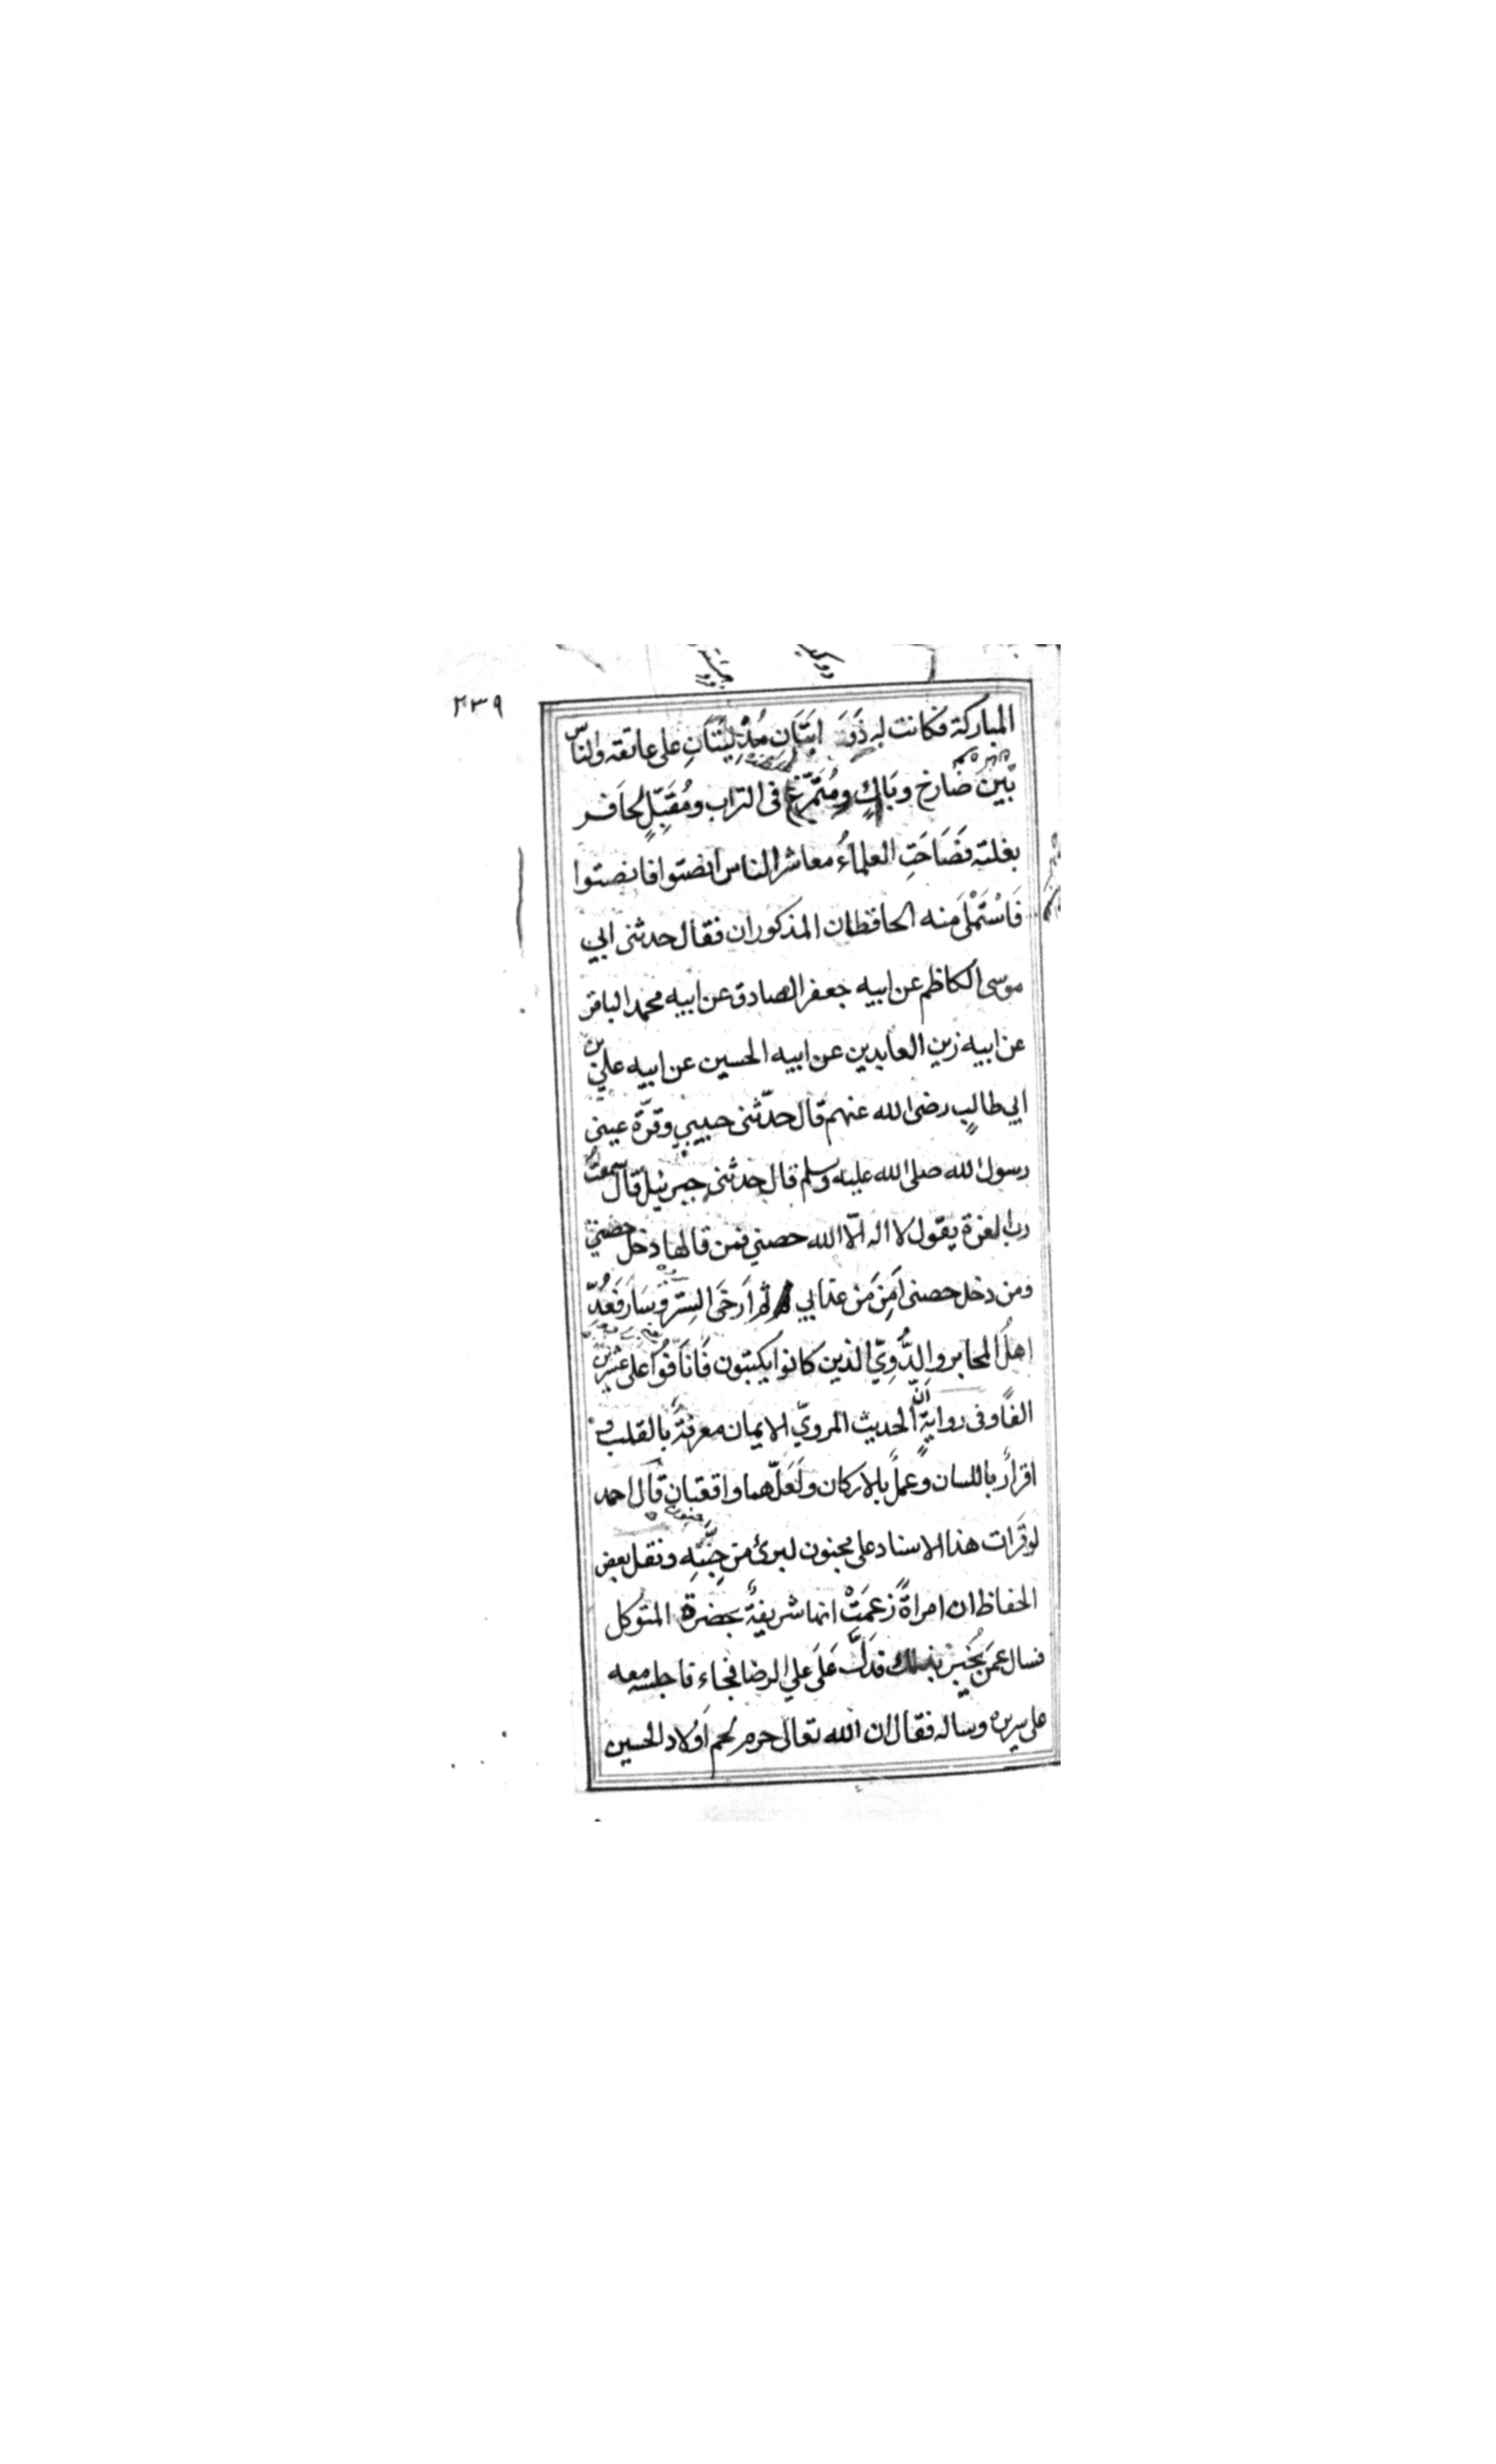 ٢٣٩
المباركة فكانت له ذَوَ ابَتَان مُدْلِيَتَانِ على عاتقه والناس
بَيْنَ صَارخ وبَاكٍ ومُتَمَرِّغٍ فى التراب ومُقَبِّلٍ لحَافر
بغلته فَصَاحَتِ العلماءُ معاشر الناس انصتوا فانصتوا
فَاسْتَمْلَى منه الحافظان المذكوران فقال حدثنى ابي
موسى الكاظم عن ابيه جعفر الصادق عن ابيه محمد الباقر
عن ابيه زين العابدين عن ابيه الحسين عن ابيه علي بن
ابي طالبٍ رضى الله عنهم قال حدّثنى حبيبي وقرّة عينى
رسول الله صلى الله عليه وسلم قال حدثنى جبرئيل قال سمعتُ
رب العزة يقول لا اله الّا الله حصني فمن قالها دخل حصني
ومن دخل حصنى اَمِنَ مَن عذابي ثم اَرخَى السِتر وَسَارَ فَعُدِّ
اهلُ المحابر والدُّوِيّ الذين كانوا يكتبون فَانَافوُا على عشرين
الفًا وفى روايةٍ اَنّ الحديث المرويّ الايمان معرفةٌ بالقلب و
اقرارٌ باللسان وعملٌ بالاركان ولَعَلّهما واقعتان قال احمد
لو قَرَات هذا الاسناد على مجنون لبرئ من جِنَّتِه ونقل بعض
الحفاظ ان امراةً زَعمَتْ انها شريفةٌ بحضرة المتوكل
فسال عمن يُخبِر بذلك فدَلّ عَلَى علي الرضا فجاء فاجلسه معه
على سريره وساله فقال ان الله تعالى حرم لحم اَولاد الحسين